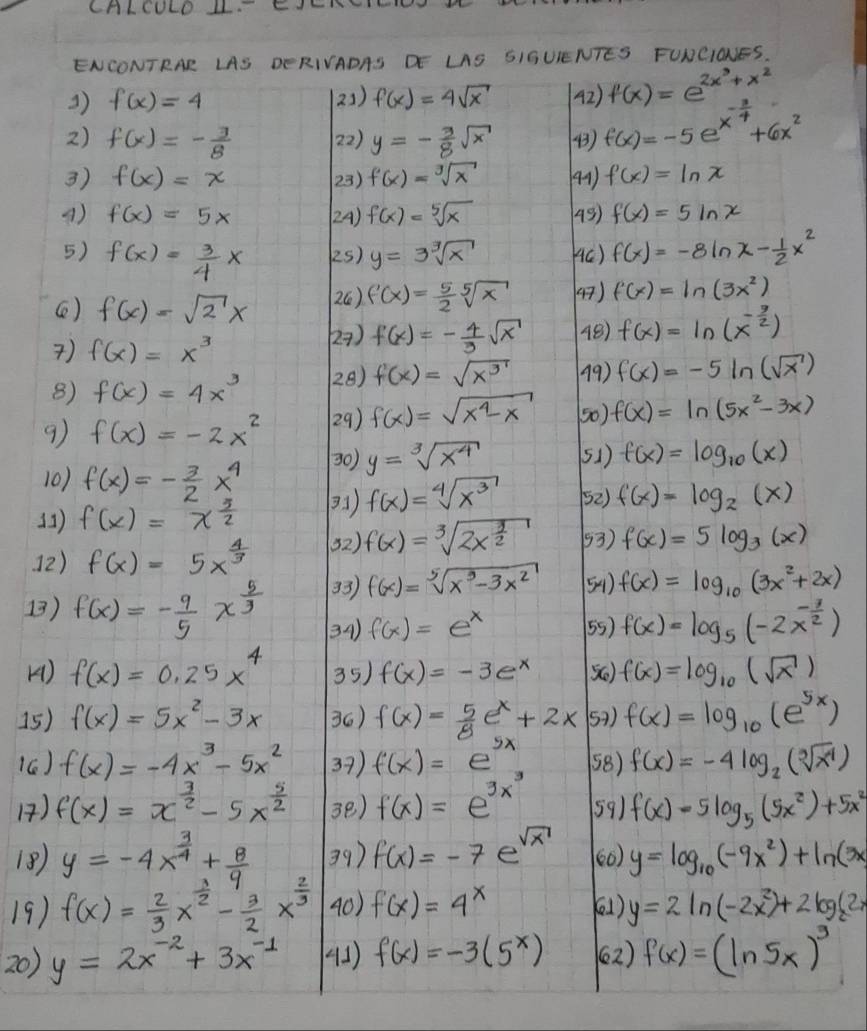 CALCULO II.-
ENCONTRAR LAS DERIVADAS DE LAS SIGUIENTES FUNCIONES.
1) f(x) = 4
2) f(x) = -3/8
3) f(x) = x
4) f(x) = 5x
5) f(x) = 3/4 x
6) f(x) = √2 x
7) f(x) = x^3
8) f(x) = 4x^3
9) f(x) = -2x^2
10) f(x) = -3/2 x^4
11) f(x) = x^(3/2)
12) f(x) = 5x^(4/3)
13) f(x) = -9/5 x^(5/3)
14) f(x) = 0.25x^4
15) f(x) = 5x^2 - 3x
16) f(x) = -4x^3 - 5x^2
17) f(x) = x^(3/2) - 5x^(5/2)
18) y = -4x^(3/4) + 8/9
19) f(x) = 2/3 x^(3/2) - 3/2 x^(2/3)
20) y = 2x^-2 + 3x^-1
21) f(x) = 4√x
22) y = -3/8 √x
23) f(x) = ∛x
24) f(x) = ⁵√x
25) y = 3∛x
26) f(x) = 5/2 ⁵√x
27) f(x) = -4/3 √x
28) f(x) = √(x^3)
29) f(x) = √(x^4 - x)
30) y = ∛(x^4)
31) f(x) = ∜(x^3)
32) f(x) = ∛(2x^(3/2))
33) f(x) = ⁵√(x^3 - 3x^2)
34) f(x) = e^x
35) f(x) = -3e^x
36) f(x) = 5/8 e^x + 2x
37) f(x) = e^(5x)
38) f(x) = e^(3x^3)
39) f(x) = -7 e^(√x)
40) f(x) = 4^x
41) f(x) = -3(5^x)
42) f(x) = e^(2x^3 + x^2)
43) f(x) = -5e^(x^(-3/4)) + 6x^2
44) f(x) = ln x
45) f(x) = 5 ln x
46) f(x) = -8 ln x - 1/2 x^2
47) f(x) = ln(3x^2)
48) f(x) = ln(x^(-3/2))
49) f(x) = -5 ln(√x)
50) f(x) = ln(5x^2 - 3x)
51) f(x) = log₁₀(x)
52) f(x) = log₂(x)
53) f(x) = 5 log₃(x)
54) f(x) = log₁₀(3x^2 + 2x)
55) f(x) = log₅(-2x^(-3/2))
56) f(x) = log₁₀(√x)
57) f(x) = log₁₀(e^(5x))
58) f(x) = -4 log₂(∛x)
59) f(x) = 5 log₅(5x^2) + 5x^2
60) y = log₁₀(-9x^2) + ln(3x
61) y = 2 ln(-2x^2) + 2 log₂(2x
62) f(x) = (ln 5x)^3